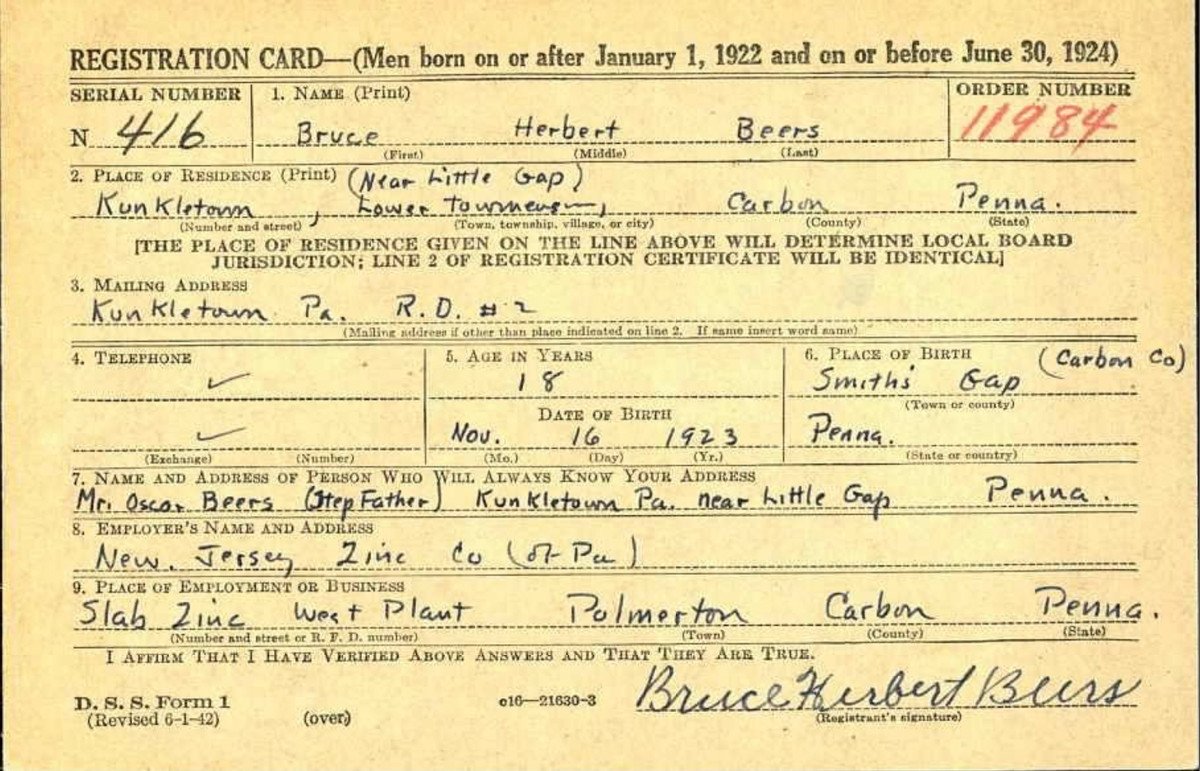 REGISTRATION CARD—(Men born on or after January 1, 1922 and on or before June 30, 1924)
SERIAL NUMBER 1. NAME (Print) ORDER NUMBER
N 416 Bruce Herbert Beers 11984
(First) (Middle) (Last)
2. PLACE OF RESIDENCE (Print) (Near Little Gap)
Kunkletown, Lower Towmensen, Carbon Penna.
(Number and street) (Town, township, village, or city) (County) (State)
[THE PLACE OF RESIDENCE GIVEN ON THE LINE ABOVE WILL DETERMINE LOCAL BOARD
JURISDICTION; LINE 2 OF REGISTRATION CERTIFICATE WILL BE IDENTICAL]
3. MAILING ADDRESS
Kunkletown Pa. R.D. #2
(Mailing address if other than place indicated on line 2. If same insert word same)
4. TELEPHONE 5. AGE IN YEARS 6. PLACE OF BIRTH (Carbon Co)
✓ 18 Smith's Gap
(Town or county)
DATE OF BIRTH
✓ Nov. 16 1923 Penna.
(Exchange) (Number) (Mo.) (Day) (Yr.) (State or country)
7. NAME AND ADDRESS OF PERSON WHO WILL ALWAYS KNOW YOUR ADDRESS
Mr. Oscar Beers (Step Father) Kunkletown Pa. near Little Gap Penna.
8. EMPLOYER'S NAME AND ADDRESS
New. Jersey Zinc Co (of Pa)
9. PLACE OF EMPLOYMENT OR BUSINESS
Slab Zinc West Plant Palmerton Carbon Penna.
(Number and street or R. F. D. number) (Town) (County) (State)
I AFFIRM THAT I HAVE VERIFIED ABOVE ANSWERS AND THAT THEY ARE TRUE.
D. S. S. Form 1
(Revised 6-1-42) (over) c16—21630-3 Bruce Herbert Beers
(Registrant's signature)